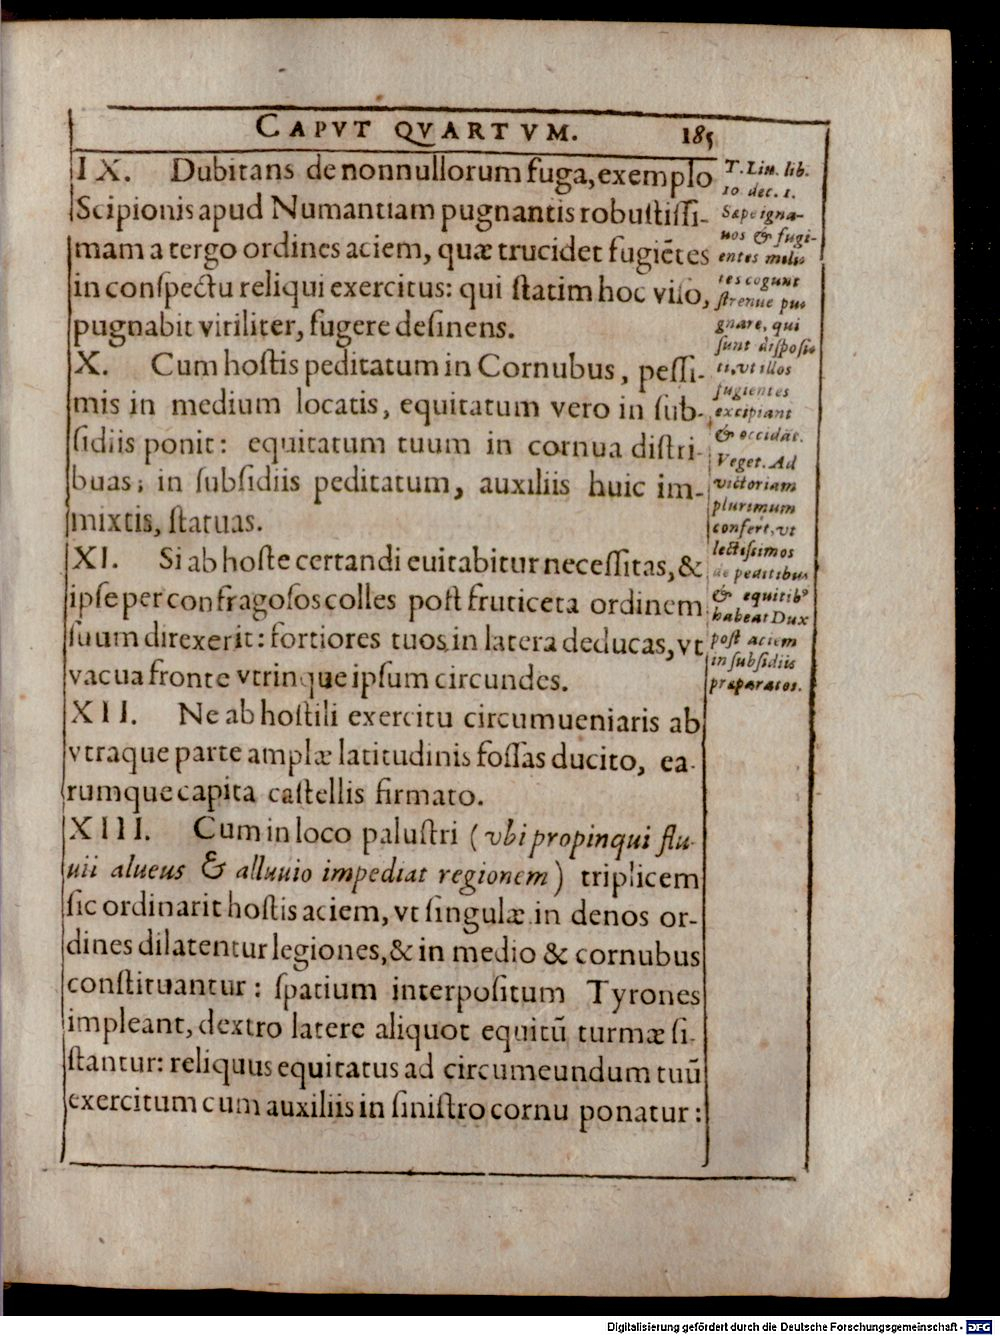 CAPVT QVARTVM. 185
IX. Dubitans de nonnullorum fuga, exemplo
Scipionis apud Numantiam pugnantis robustissi-
mam a tergo ordines aciem, quæ trucidet fugiẽtes
in conspectu reliqui exercitus: qui statim hoc viso,
pugnabit viriliter, fugere desinens.
X. Cum hostis peditatum in Cornubus, pessi-
mis in medium locatis, equitatum vero in sub-
sidiis ponit: equitatum tuum in cornua distri-
buas; in subsidiis peditatum, auxiliis huic im-
mixtis, statuas.
XI. Si ab hoste certandi euitabitur necessitas, &
ipse per confragosos colles post fruticeta ordinem
suum direxerit: fortiores tuos in latera deducas, vt
vacua fronte vtrinque ipsum circundes.
XII. Ne ab hostili exercitu circumueniaris ab
vtraque parte amplæ latitudinis fossas ducito, ea-
rumque capita castellis firmato.
XIII. Cum in loco palustri (vbi propinqui flu-
uii alueus & alluuio impediat regionem) triplicem
sic ordinarit hostis aciem, vt singulæ in denos or-
dines dilatentur legiones, & in medio & cornubus
constituantur: spatium interpositum Tyrones
impleant, dextro latere aliquot equitũ turmæ si-
stantur: reliquus equitatus ad circumeundum tuũ
exercitum cum auxiliis in sinistro cornu ponatur:
T. Liu. lib.
10 dec. 1.
Sæpe igna-
uos & fugi-
entes mili-
tes cogunt
strenue pu-
gnare, qui
sunt disposi-
ti, vt illos
fugientes
excipiant
& occidãt.
Veget. Ad
victoriam
plurimum
confert, vt
lectissimos
de peditibus
& equitib⁹
habeat Dux
post aciem
in subsidiis
præparatos.
Digitalisierung gefördert durch die Deutsche Forschungsgemeinschaft - DFG